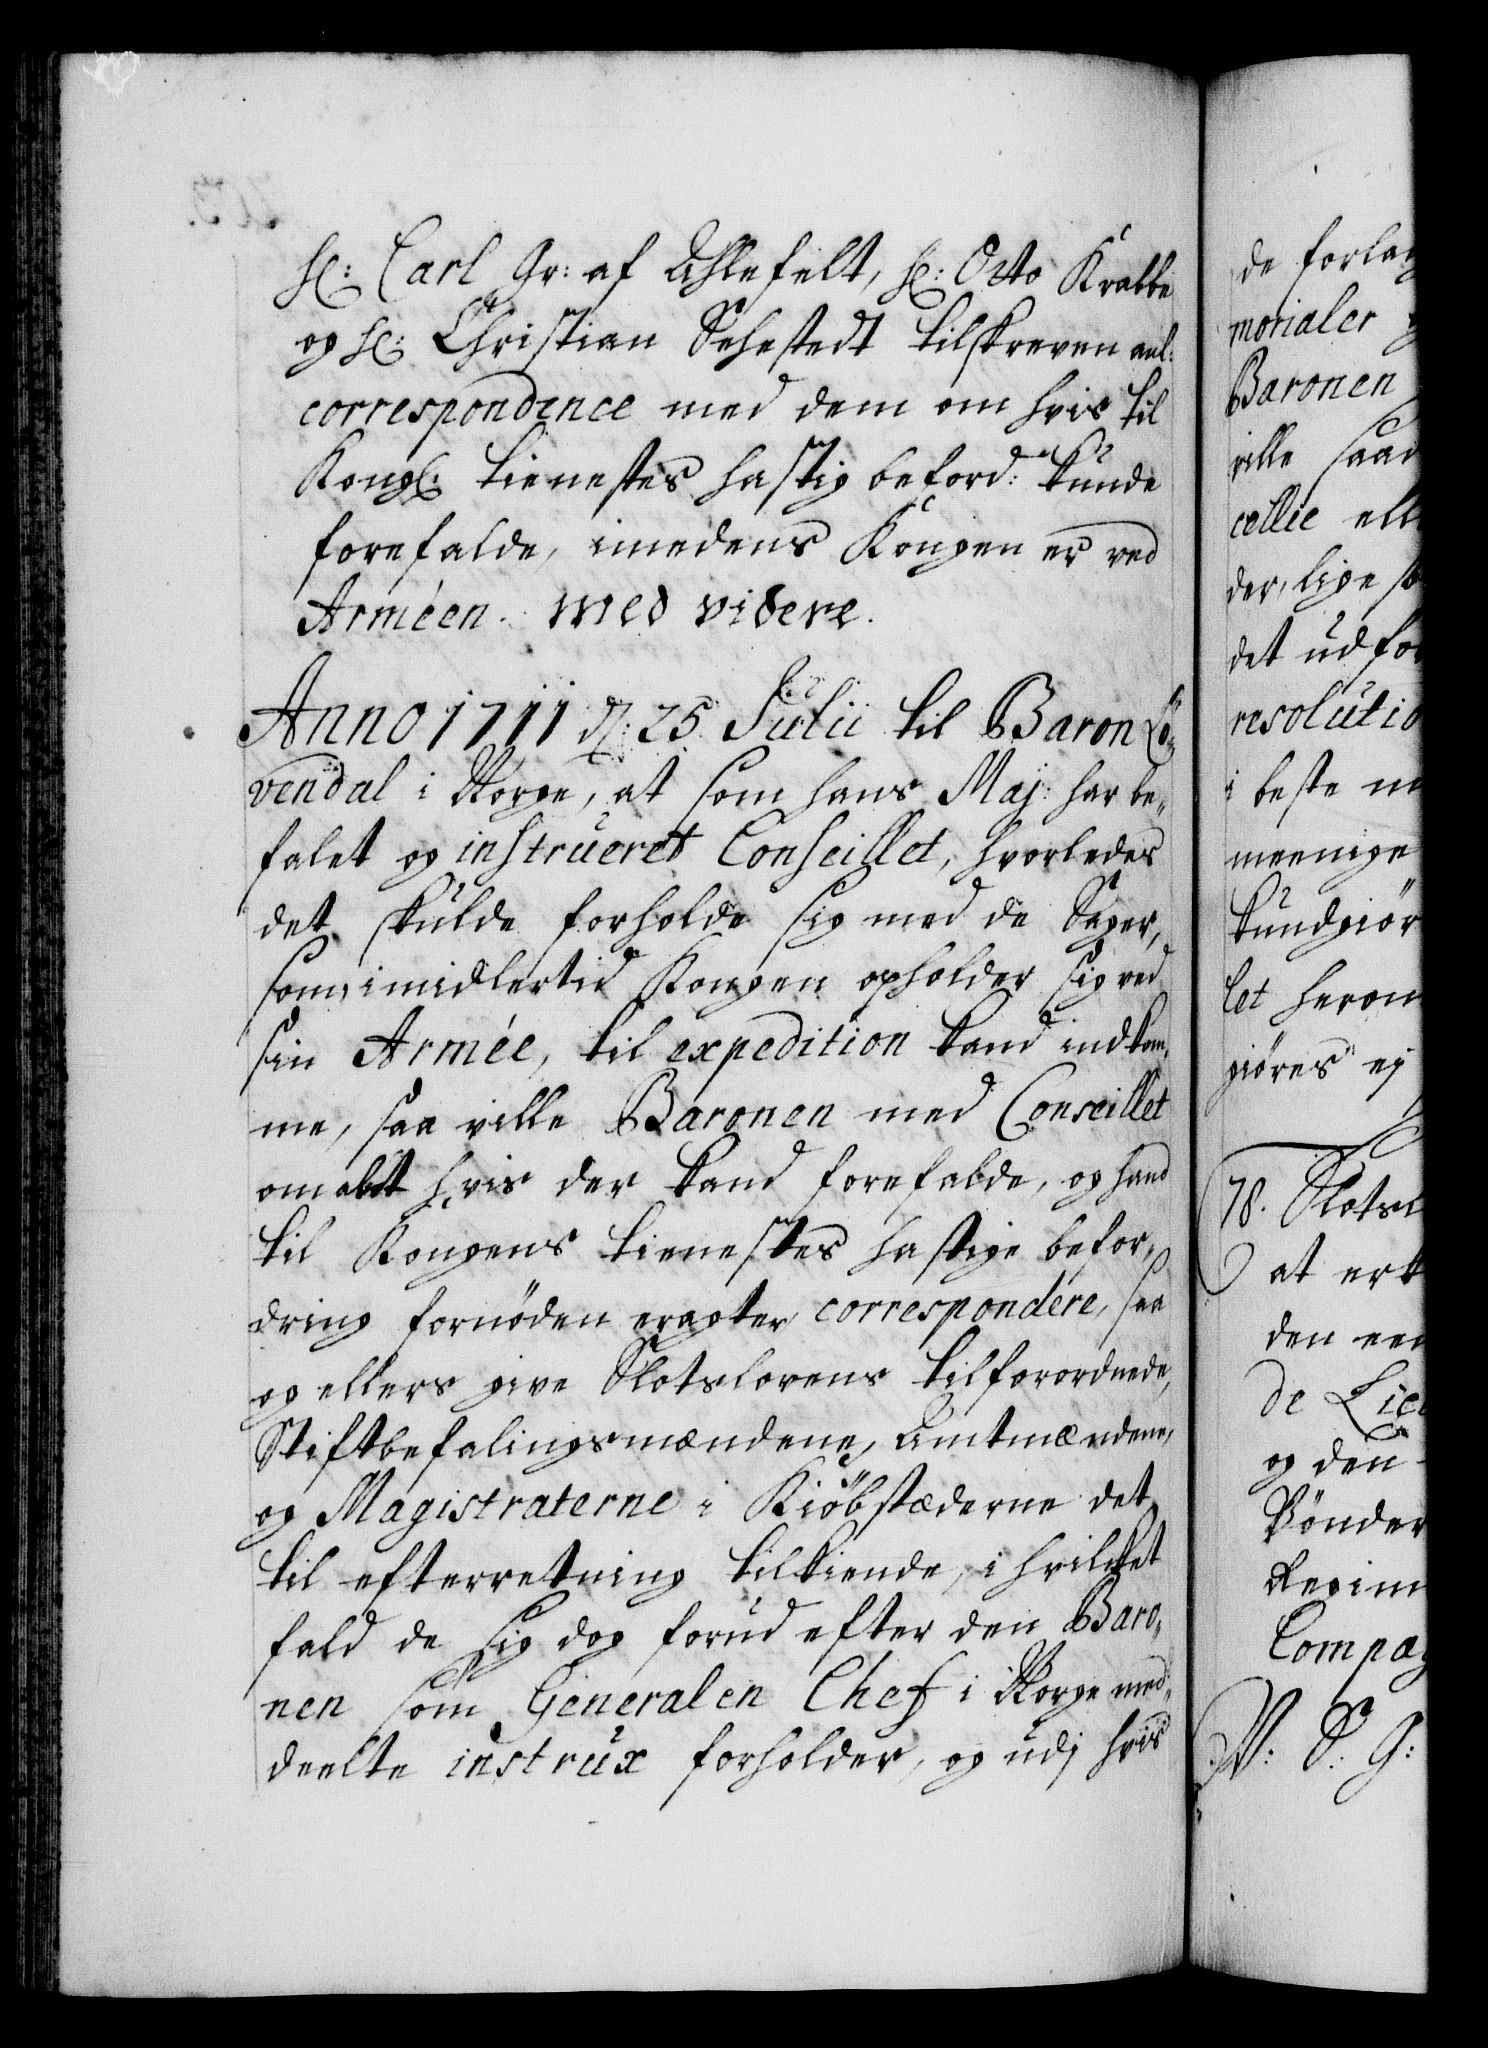 H: Carl Gr: af Ahlefelt, H: Otto Krabbe
og H: Christian Sehestedt tilskreven anl:
correspondence med dem om hvis til
Kongl: tienestes hastig beford: kunde
forefalde, imedens Kongen er ved
Arméen. med videre.
Anno 1711 d: 25 Julii til Baron Lö¬
vendal i Norge, at som hans Maj: har be¬
falet og instrueret Conseillet, hvorledes
det skulde forholde sig med de Sager,
som imidlertid Kongen opholder sig ved
sin Armée, til expedition kand indkom¬
me, saa ville Baronen med Conseillet
om alt hvis der kand forefalde, og hand
til Kongens tienestes hastige befor¬
dring fornöden eragter correspondere, saa
og ellers give Slotslovens tilforordnede,
Stiftbefalingsmændene, Amtmændene,
og Magistraterne i Kiöbstæderne det
til efterretning tilkiende, i hvilket
fald de sig dog forud efter den Baro¬
nen som Generalen Chef i Norge med¬
deelte instrux forholder, og udj hvis
de forlan
morialer
Baronen
ville saad
cellie ell
der, lige s
det udfor
resolutio
i beste m
meenige
kundgiör
let herom
giöres ej
78. Slotsl
at erk
den een
de Lie
og den
Bönder
Regim
Compag
N: S: G: